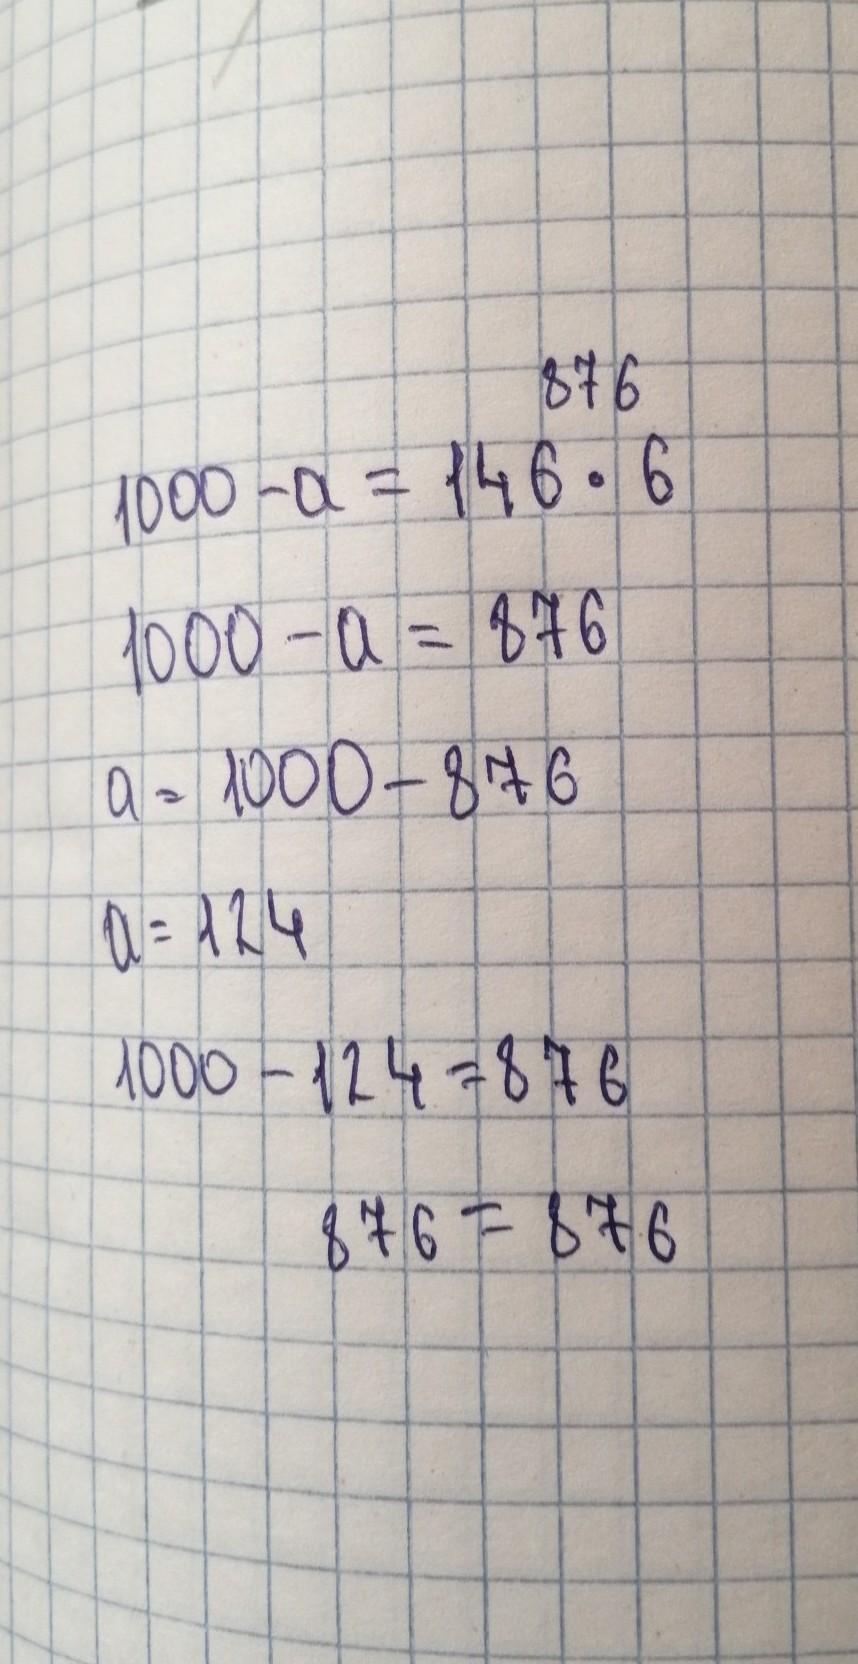 876
1000 - a = 146 · 6
1000 - a = 876
a = 1000 - 876
a = 124
1000 - 124 = 876
876 = 876